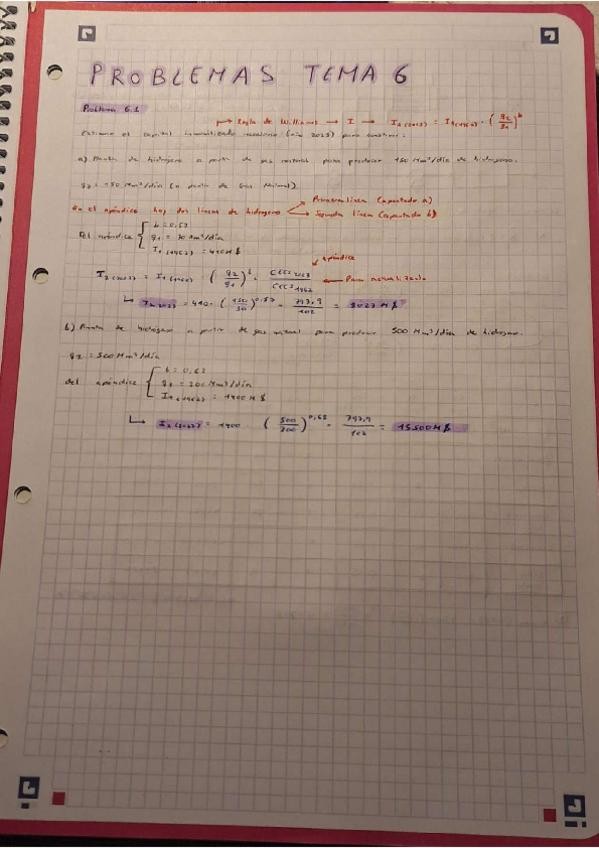 PROBLEMAS TEMA 6
Problema 6.1
→ Regla de Williams → I → I₂(2023) = I₁(1962) · (q₂/q₁)ᵇ
Estimar el capital inmovilizado necesario (año 2023) para construir:
a) Planta de hidrógeno a partir de gas natural para producir 150 Mm³/día de hidrógeno.
q₂ = 150 Mm³/día (a partir de Gas Natural)
En el apéndice hay dos líneas de hidrógeno
Primera línea (apartado a)
Segunda línea (apartado b)
Del apéndice
q₁ = 30 Mm³/día
I₁(1962) = 410 M$
apéndice
I₂(2023) = I₁(1962) · (q₂/q₁)ᵇ · CEC2023/CEC1962 ← Para actualizarlo
↳ I₂,2023 = 410 · (150/30)^0,67 · 797,9/102 =
b) Planta de hidrógeno a partir de gas natural para producir 500 Mm³/día de hidrógeno.
q₂ = 500 Mm³/día
del apéndice
q₁ = 200 Mm³/día
I₁(1962) = 1100 M$
↳ I₂(2023) = 1100 (500/200) · 797,9/102 = 15.500 M$